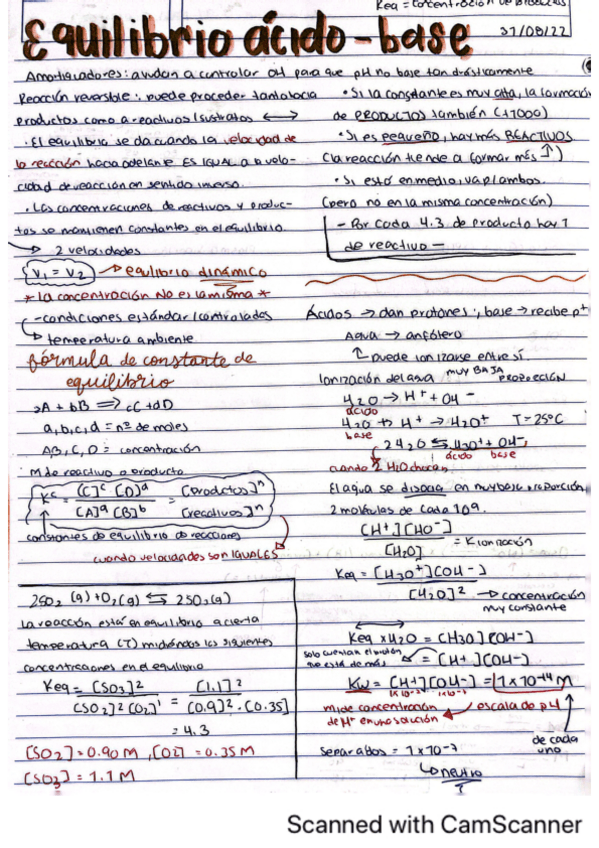 Keq = concentración de productos
Equilibrio ácido-base
31/08/22
Amortiguadores: ayudan a controlar pH para que pH no base tan drásticamente
Reacción reversible: puede proceder tanto hacia
productos como a reactivos/sustratos ⟷
• El equilibrio se da cuando la velocidad de
la reacción hacia adelante ES IGUAL a la velo-
cidad de reacción en sentido inverso.
• Las concentraciones de reactivos y produc-
tos se mantienen constantes en el equilibrio.
→ 2 velocidades
V₁ = V₂ → equilibrio dinámico
* la concentración No es la misma *
- condiciones estándar/controlados
→ temperatura ambiente.
fórmula de constante de
equilibrio
aA + bB ⇌ cC + dD
a, b, c, d = nº de moles
A, B, C, D = concentración
M de reactivo o producto
Kc = [C]^c [D]^d / [A]^a [B]^b = [productos]^n / [reactivos]^n
constantes de equilibrio de reacciones
cuando velocidades son IGUALES
2SO₂ (g) + O₂ (g) ⇆ 2SO₃ (g)
La reacción está en equilibrio a cierta
temperatura (T) midiéndose las siguientes
concentraciones en el equilibrio
Keq = [SO₃]² / [SO₂]² [O₂]¹ = [1.1]² / [0.9]² · [0.35]
= 4.3
[SO₂] = 0.90 M, [O₂] = 0.35 M
[SO₃] = 1.1 M
• Si la constante es muy alta, la formación
de PRODUCTOS también (↓7000)
• Si es PEQUEÑO, hay más REACTIVOS
(la reacción tiende a formar más ↑)
• Si está en medio, va p/ ambos.
(pero no en la misma concentración)
- Por cada 4.3 de producto hay 1
de reactivo -
Ácidos → dan protones ; base → recibe p⁺
Agua → anfótero
↑ puede ionizarse entre sí.
Ionización del agua MUY BAJA PROPORCIÓN
H₂O → H⁺ + OH⁻
ácido
H₂O + H⁺ → H₃O⁺ T = 25°C
base
2 H₂O ⇆ H₃O⁺ + OH⁻
ácido base
cuando 2 H₂O chocan
El agua se disocia en muy baja proporción
2 moléculas de cada 10⁹.
[H⁺][HO⁻] / [H₂O] = K ionización
Keq = [H₃O⁺][OH⁻] / [H₂O]² → concentración
muy constante
Keq x H₂O = [H₃O][OH⁻]
= [H⁺][OH⁻]
Kw = [H⁺][OH⁻] = 1 x 10⁻¹⁴ M
1x10⁻⁷ 1x10⁻⁷
mide concentración ← escala de pH
de H⁺ en una solución
de cada
uno
separados = 1 x 10⁻⁷
↳ neutro
Scanned with CamScanner